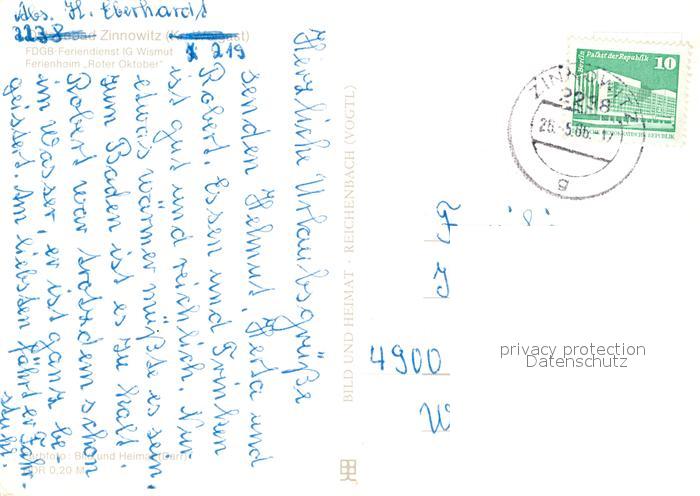 Abs. H. Eberhardt
2238
Ostseebad Zinnowitz
FDGB-Feriendienst IG Wismut
Ferienheim „Roter Oktober"
219
Herzliche Urlaubsgrüße
senden Helmut, Herta und
Robert. Essen und Trinken
ist gut und reichlich. Nur
etwas wärmer müßte es sein.
Zum Baden ist es zu kalt.
Robert war trotzdem schon
im Wasser, er ist ganz be-
geistert. Am liebsten fährt er Fahr-
stuhl.
Farbfoto: Bild und Heimat
DDR 0,20 M
BILD UND HEIMAT · REICHENBACH (VOGTL)
Berlin Palast der Republik 10
ZINNOWITZ
2238
g
F
J
4900
W
privacy protection
Datenschutz